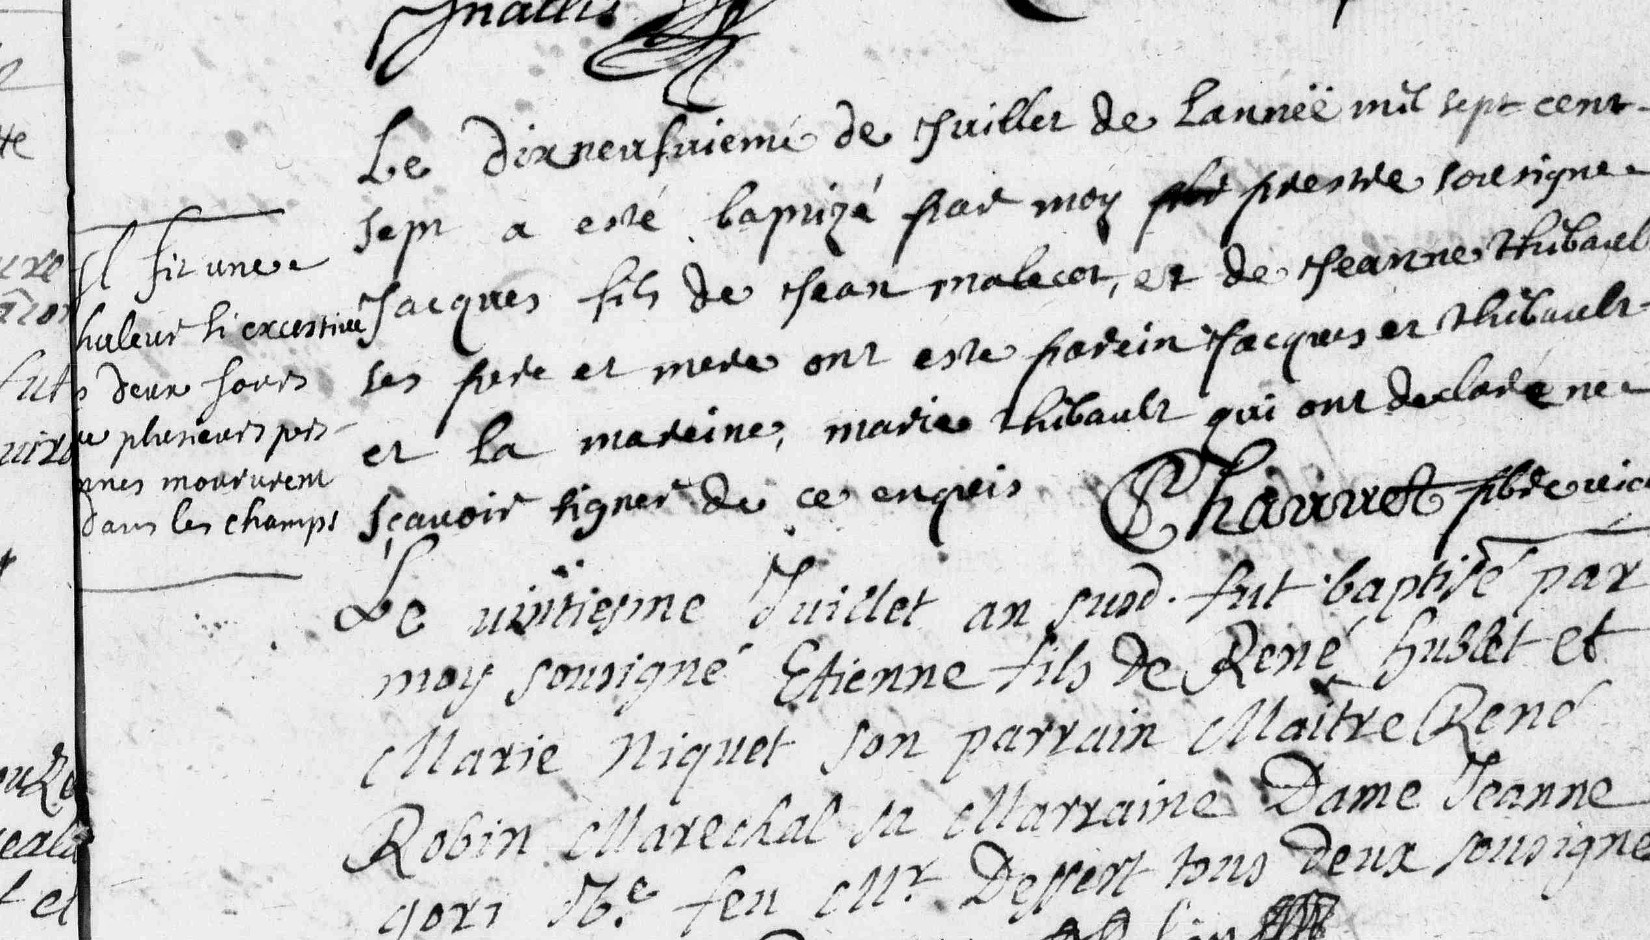 Le dixneufuieme de Juillet de Lanneë mil sept cent
sept a esté baptizé par moy prestre sousigne
Jacques fils de Jean malecot, et de Jeanne Thibault
ses pere et mere ont este parein Jacques et Thibault
et la mareine, marie Thibault qui ont declaré ne
sçavoir signer de ce enquis Chauvet pbre vic
Il fit une
haleur si excessive
s deux jours
ue plusieurs per-
nnes moururent
dans les champs
Le vintiesme Juillet an susd. fut baptisé par
moy sousigné Etienne fils de René hublet et
Marie Niquet son parrain Maître René
Robin Marechal sa Marraine Dame Jeanne
gori feu Mr. Dessert tous deux sousigné